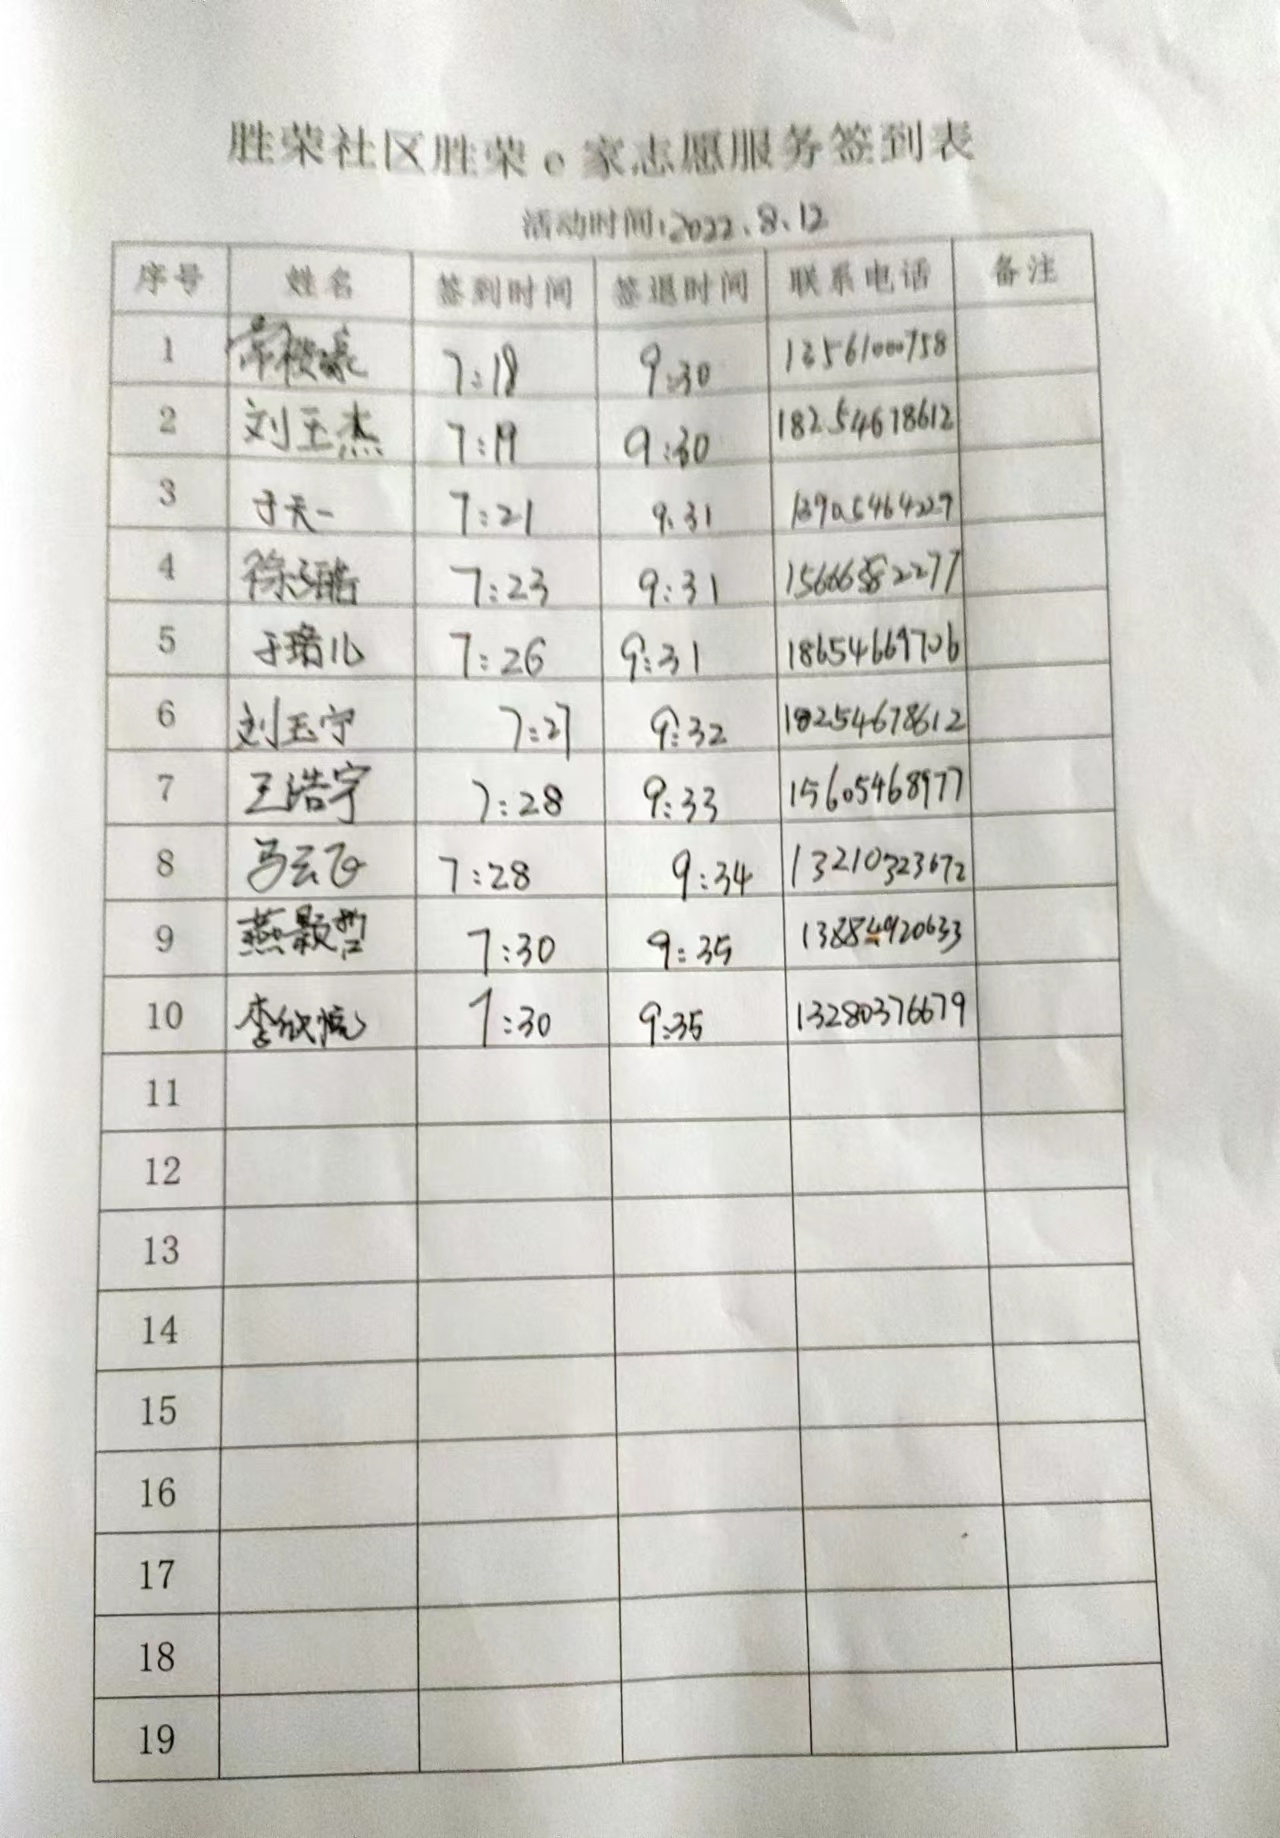 胜荣社区胜荣e家志愿服务签到表
活动时间:2022.8.12
序号 姓名 签到时间 签退时间 联系电话 备注
1 7:18 9:30 13561000758
2 刘玉杰 7:19 9:30 18254678612
3 于天一 7:21 9:31 13905464227
4 徐 7:23 9:31 15666582277
5 于瑞儿 7:26 9:31 18654669706
6 刘玉宁 7:27 9:32 18254678612
7 王浩宇 7:28 9:33 15605468977
8 马云飞 7:28 9:34 13210323672
9 燕颢哲 7:30 9:35 13884920633
10 李欣悦 7:30 9:35 13280376679
11
12
13
14
15
16
17
18
19